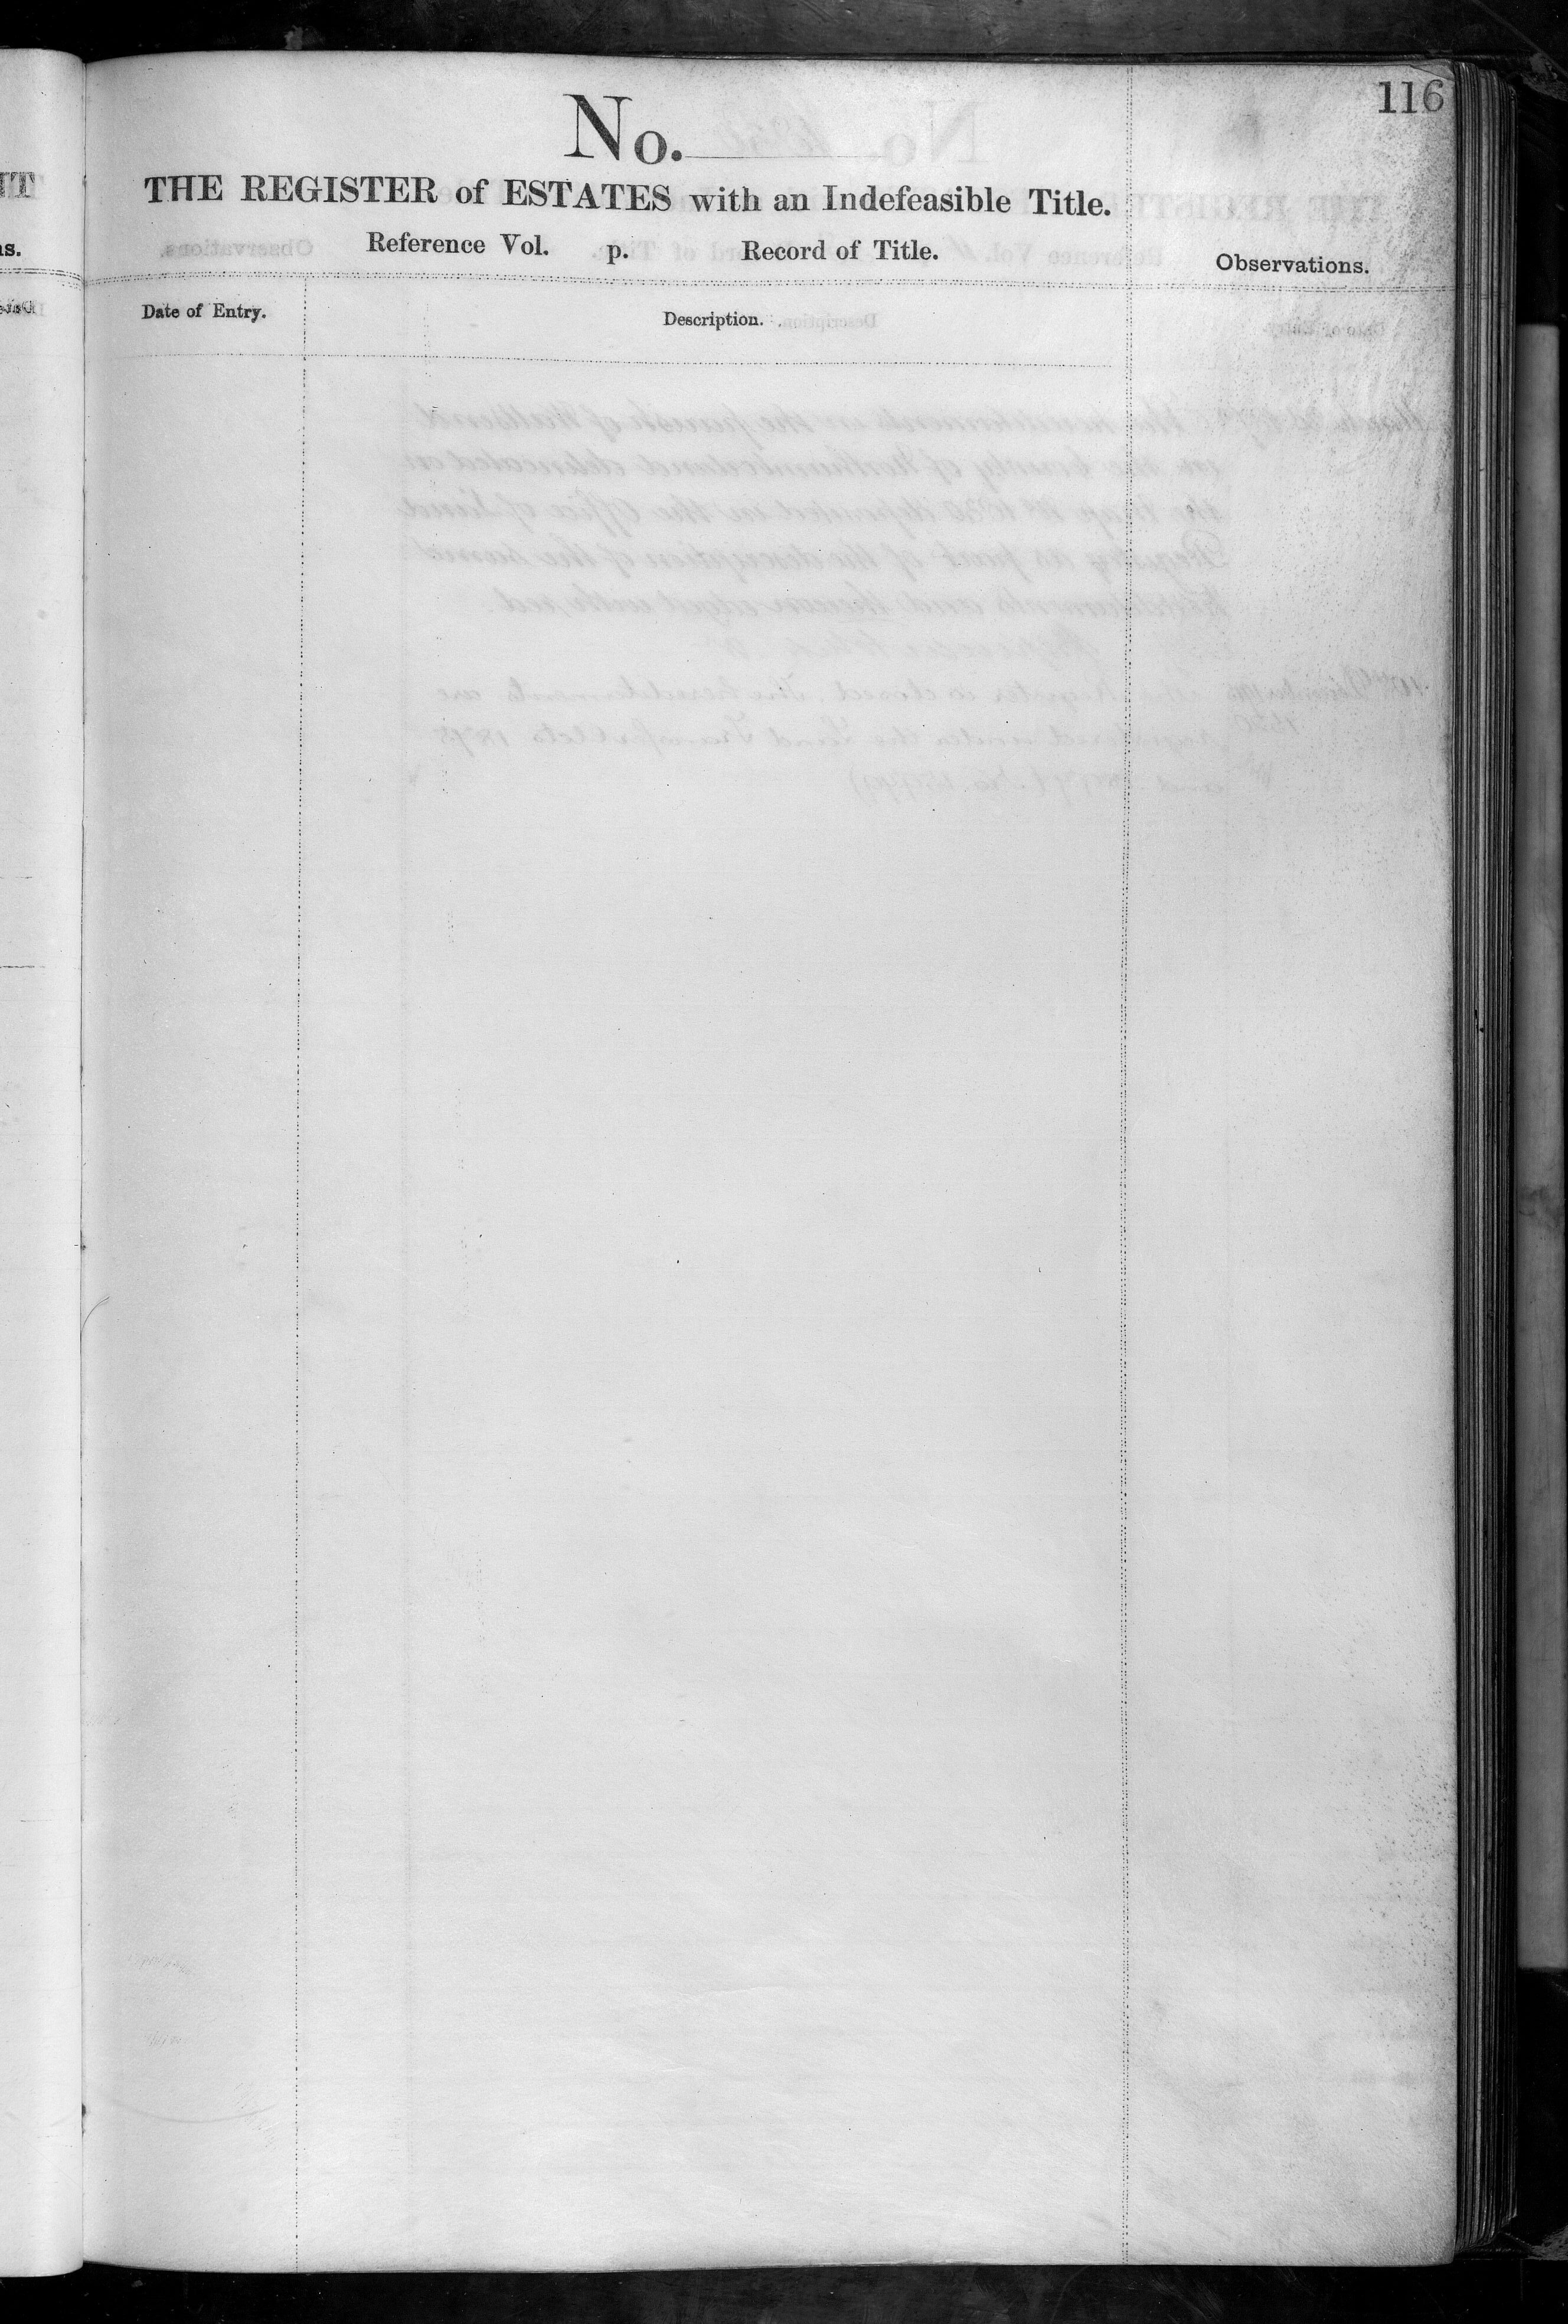 116
No.
THE REGISTER of ESTATES with an Indefeasible Title.
Reference Vol. p. Record of Title.
Observations.
Date of Entry.
Description.